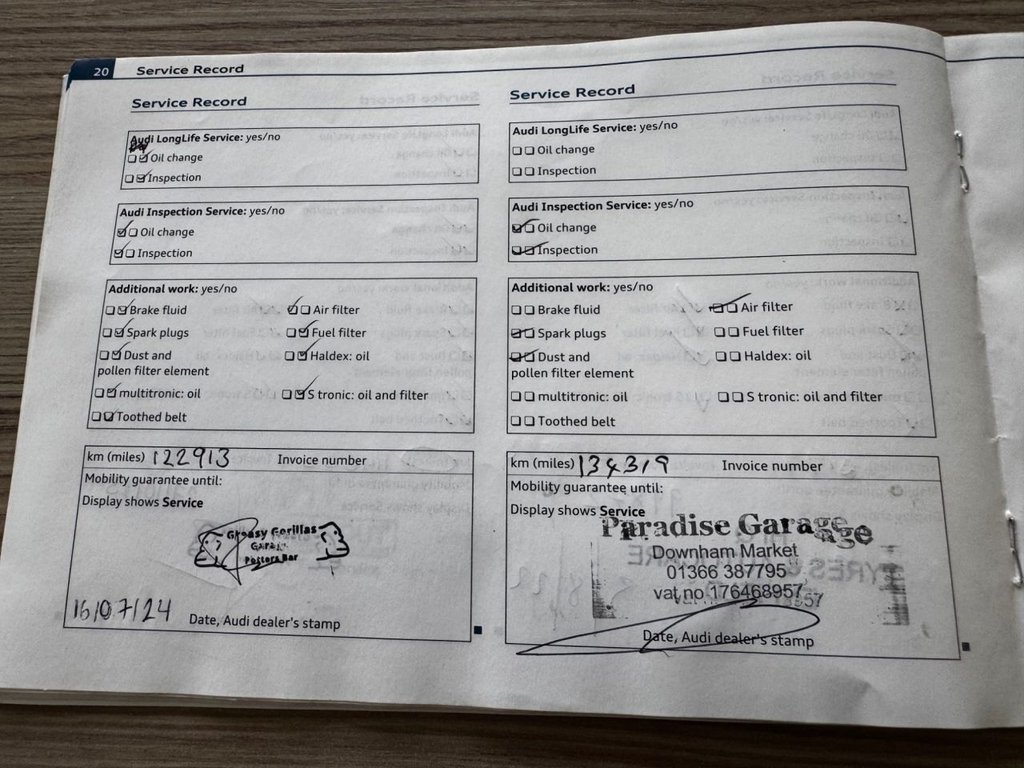 20 Service Record
Service Record
Audi LongLife Service: yes/no
Oil change
Inspection
Audi Inspection Service: yes/no
Oil change
Inspection
Additional work: yes/no
Brake fluid Air filter
Spark plugs Fuel filter
Dust and Haldex: oil
pollen filter element
multitronic: oil S tronic: oil and filter
Toothed belt
km (miles) 122913 Invoice number
Mobility guarantee until:
Display shows Service
Greasy Gorillas
Garage
Potters Bar
16/07/24 Date, Audi dealer's stamp
Service Record
Audi LongLife Service: yes/no
Oil change
Inspection
Audi Inspection Service: yes/no
Oil change
Inspection
Additional work: yes/no
Brake fluid Air filter
Spark plugs Fuel filter
Dust and Haldex: oil
pollen filter element
multitronic: oil S tronic: oil and filter
Toothed belt
km (miles) 134319 Invoice number
Mobility guarantee until:
Display shows Service
Paradise Garage
Downham Market
01366 387795
vat no 176468957
Date, Audi dealer's stamp